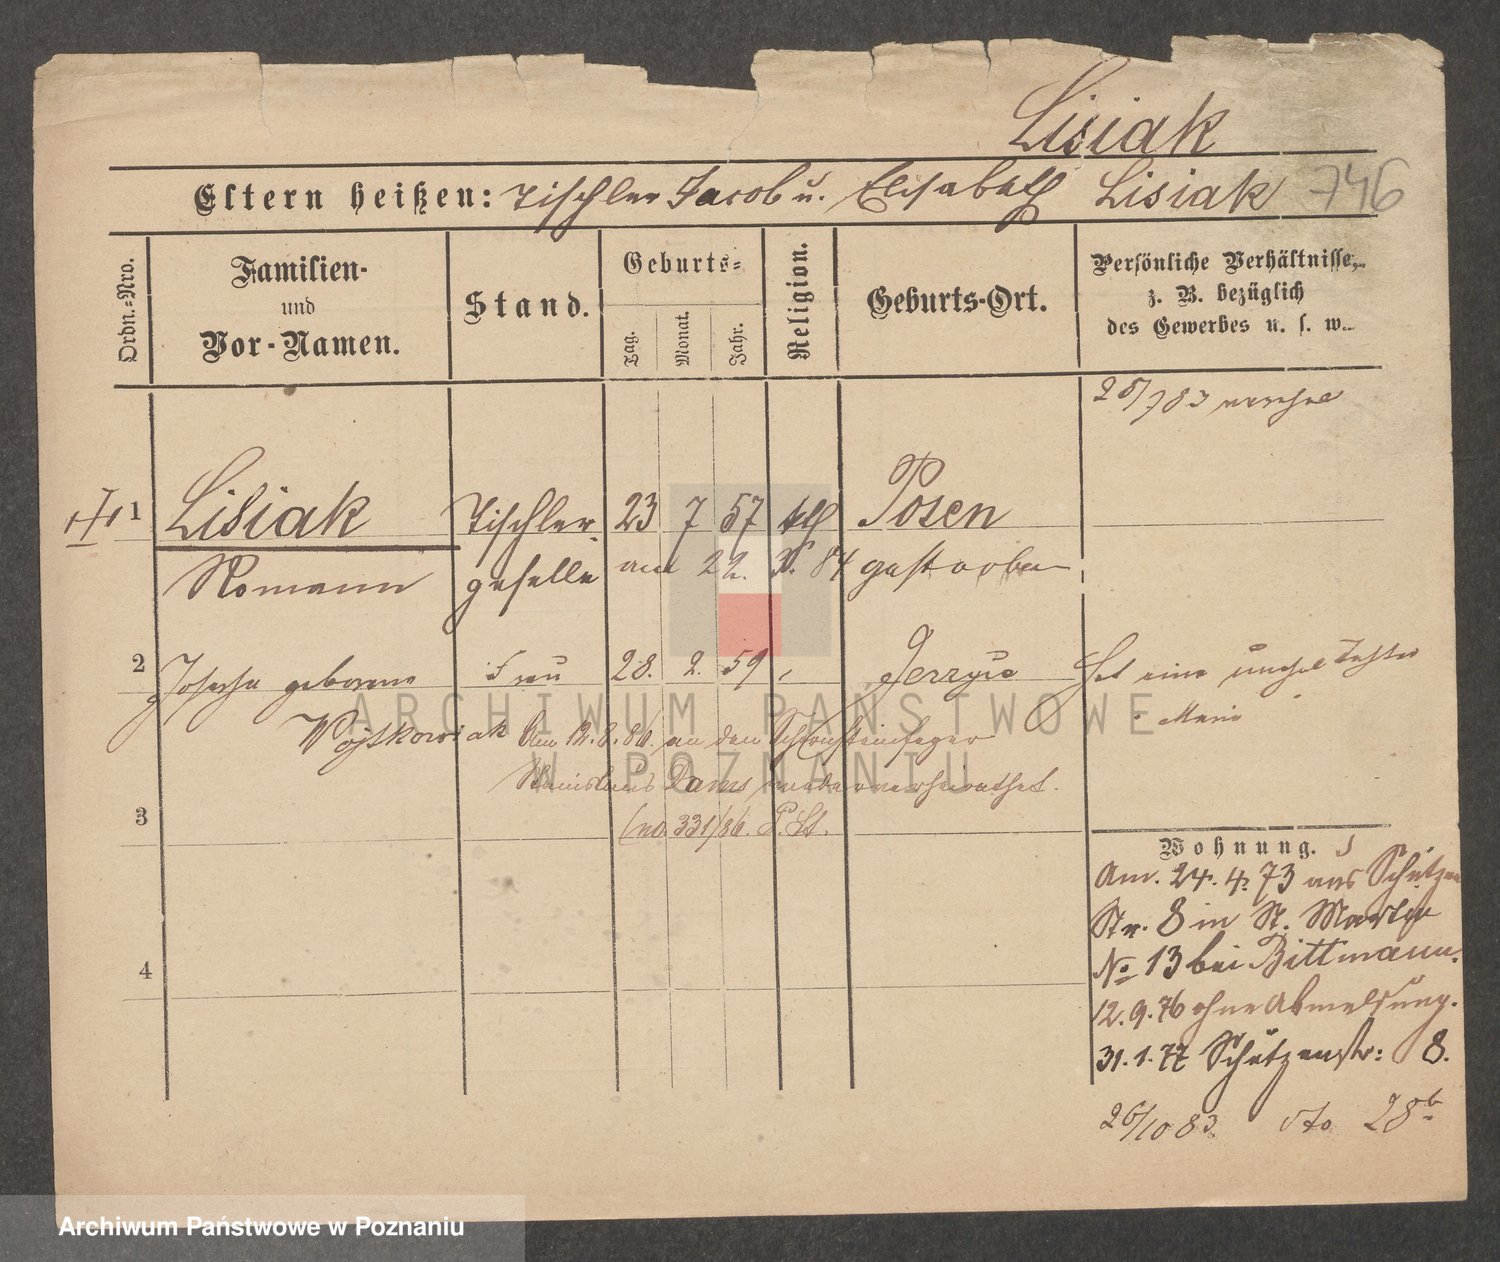 Lisiak
Eltern heißen: Tischler Jacob u. Elisabeth Lisiak 746
Ordn.-Nro.
Familien-
und
Vor-Namen.
Stand.
Geburts-
Tag.
Monat.
Jahr.
Religion.
Geburts-Ort.
Persönliche Verhältnisse,
z. B. bezüglich
des Gewerbes u. s. w.
28/7 83
1 Lisiak Tischler- 23 7 57 kth Posen
Romann geselle am 22. 84 gestorben
2 Josepha geborene Frau 28. 2. 59 Jerzyce Hat eine unehel Tochter
Wojtkowiak Am 12. 8. 86. an den Schornsteinfeger Marie
Stanislaus wiederverheirathet.
(no. 331)/86. P. St.
3
4
Wohnung.
Am. 24. 4. 73 aus Schützen
Str. 8 in St. Martin
No 13 bei Bittmann.
12. 9. 76 ohne Abmeldung.
31. 1. 77 Schützenstr: 8.
26/10 83 dto 28b
ARCHIWUM PAŃSTWOWE
W POZNANIU
Archiwum Państwowe w Poznaniu